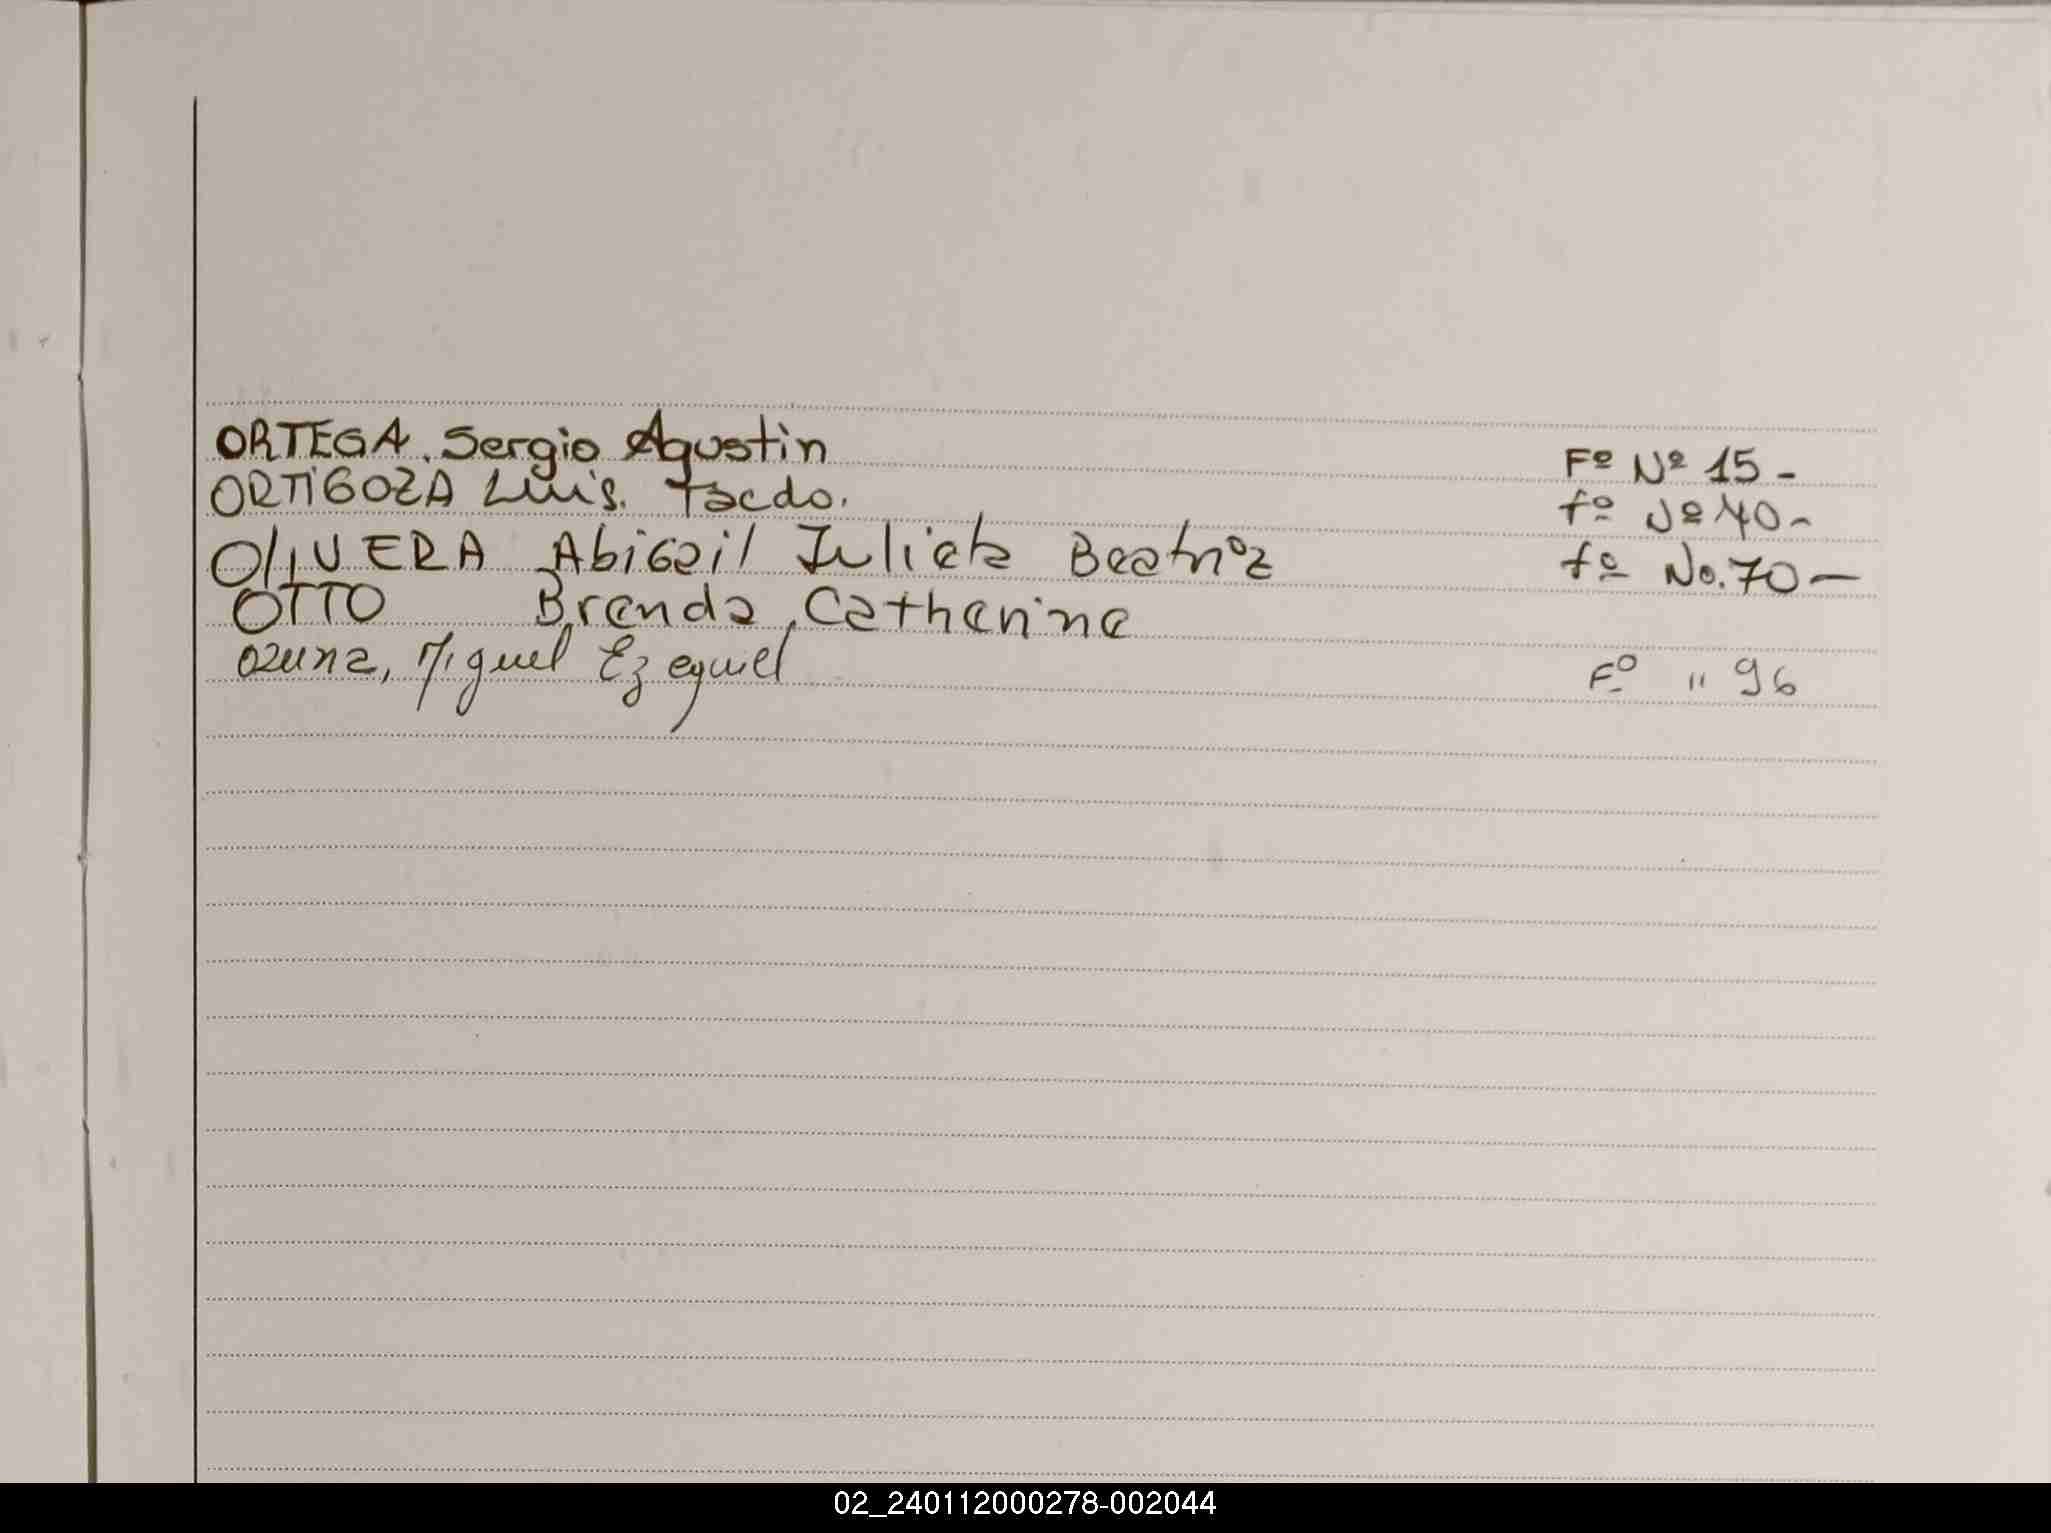 ORTEGA. Sergio Agustin Fº Nº 15 -
ORTIGOZA Luis. Facdo. fº Nº 40 -
OlIVERA Abigail Julieta Beatriz fº No. 70 -
OTTO Brenda Catherine
Ozuna, Miguel Ezequiel Fº " 96
02_240112000278-002044